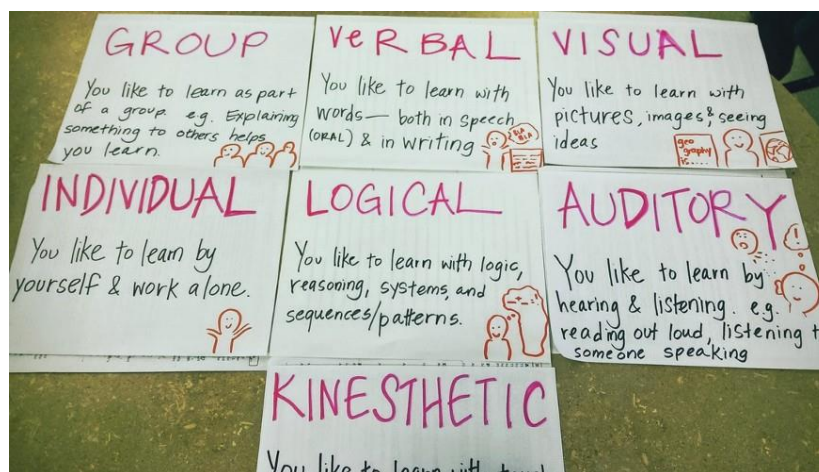 GROUP
You like to learn as part
of a group. e.g. Explaining
something to others helps
you learn.
VeRBAL
You like to learn with
words— both in speech
(ORAL) & in writing
BLA
BLA
VISUAL
You like to learn with
pictures, images, & seeing
ideas
geo
graphy
is....
INDIVIDUAL
You like to learn by
yourself & work alone.
LOGICAL
You like to learn with logic,
reasoning, systems, and
sequences/patterns.
AUDITORY
You like to learn by
hearing & listening. e.g.
reading out loud, listening t
someone speaking
KINESTHETIC
You like to learn with